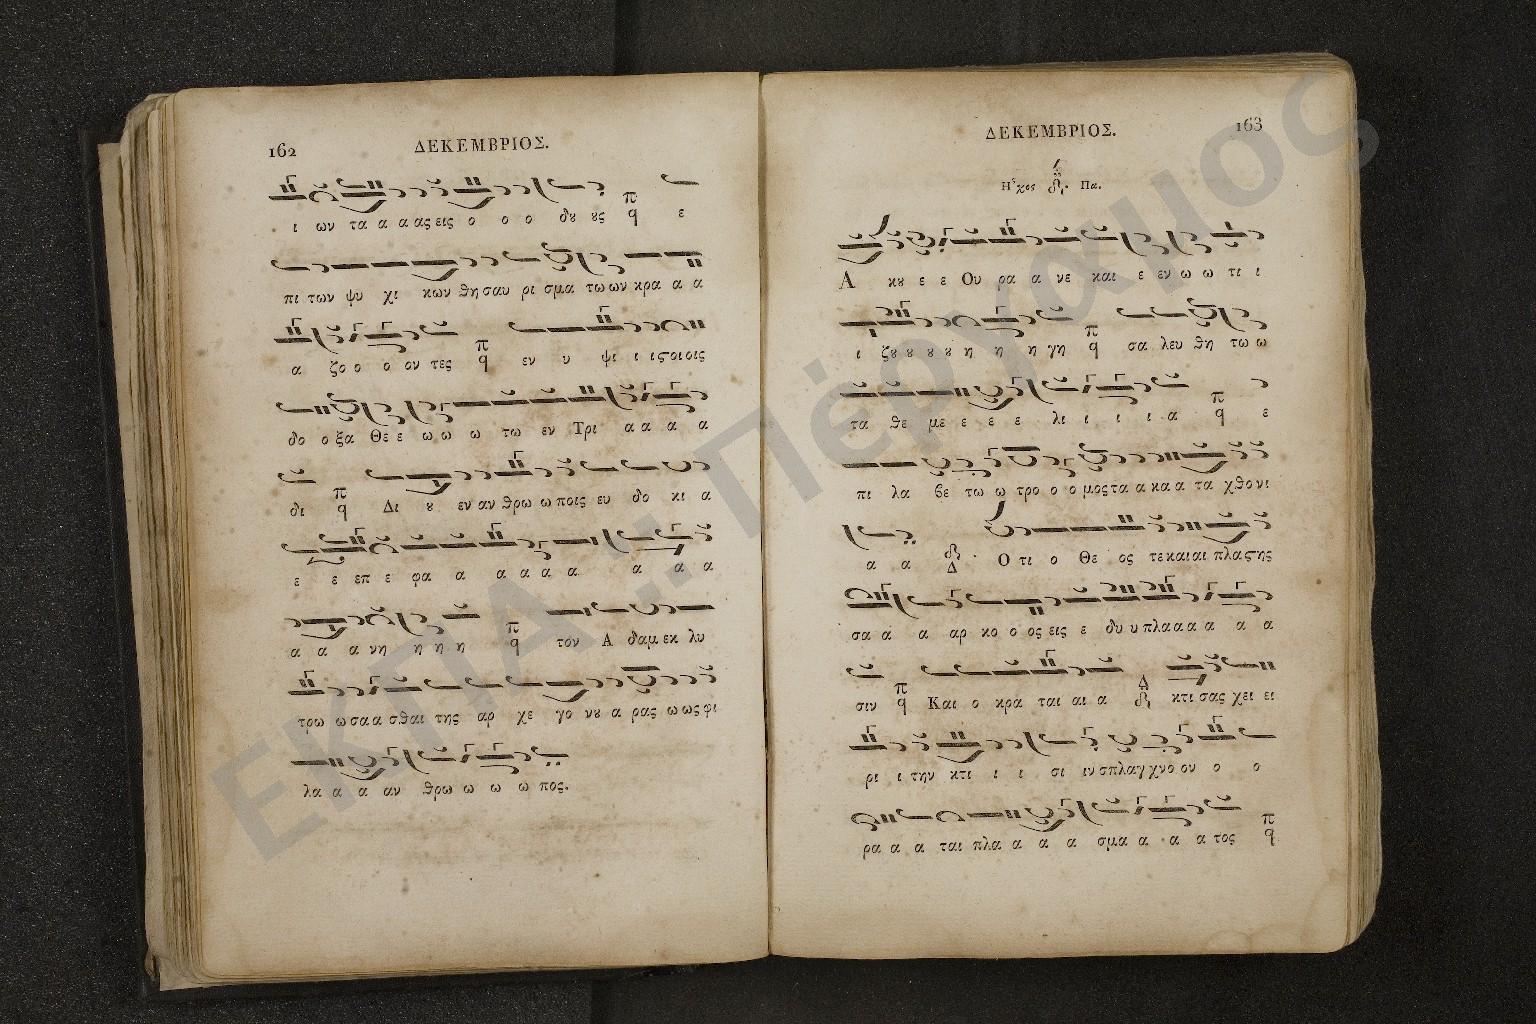 162 ΔΕΚΕΜΒΡΙΟΣ.
ι ων τα α α ας εις ο ο ο δȣ ȣς π q ε
πι των ψυ χι κων θη σαυ ρι σμα τω ων κρα α α
α ζο ο ο ον τες π q εν υ ψι ι ι ϛοιοις
δο ο ξα Θε ε ω ω ω τω εν Τρι α α α α
δι π q Δι ȣ εν αν θρω ω ποις ευ δο κι α
ε ε επ ε φα α α α α α α α α
α α α νη η η η π q τον Α δαμ εκ λυ
τρω ω σα α σθαι της αρ χε γο νȣ α ρας ω ως φι
λα α α αν θρω ω ω ω πος.
ΔΕΚΕΜΒΡΙΟΣ. 163
Ηχος Πα.
Α κȣ ε ε Ου ρα α νε και ε εν ω ω τι ι
ι ζȣ ȣ ȣ ȣ η η η γη π q σα λευ θη τω ω
τα θε με ε ε ε λι ι ι ι α π q ε
πι λα βε τω ω τρο ο ο μος τα α κα α τα χθο νι
α α Δ Ο τι ο Θε ος τε και αι πλα ϛης
σα α α αρ κο ο ος εις ε δυ υ πλα α α α α α
σιν π q Και ο κρα ται αι α Δ κτι σας χει ει
ρι ι την κτι ι ι σι ιν σπλαγ χνο ον ο ο
ρα α α ται πλα α α α σμα α α α τος π q
ΕΚΠΑ :: Πέργαμος